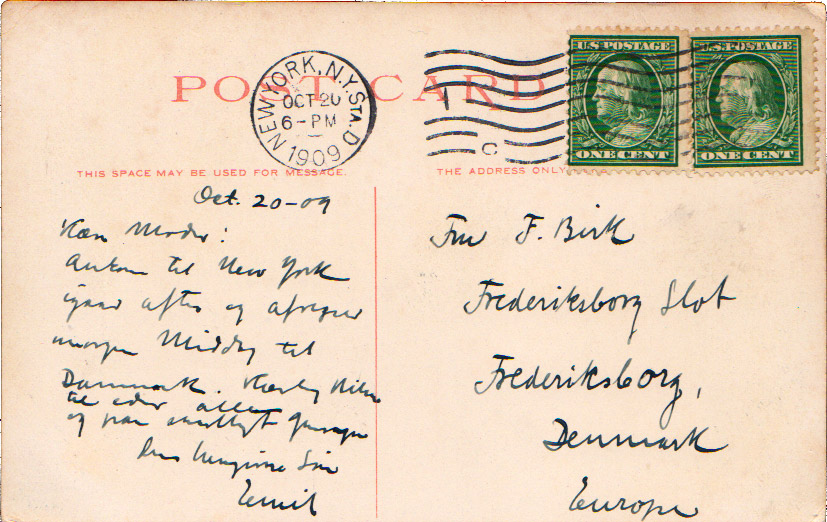 POST CARD
NEW YORK, N.Y. STA. D
OCT 20
6-PM
1909
C
U.S. POSTAGE
ONE CENT
U.S. POSTAGE
ONE CENT
THIS SPACE MAY BE USED FOR MESSAGE.
THE ADDRESS ONLY
Oct. 20-09
Kære Moder!
Ankom til New York
igaar aftes og afrejser
morgen Middag til
Danmark. Kærlig Hilsen
til eder alle
og paa snarligt Gensyn
Din hengivne Søn
Emil
Fru F. Birk
Frederiksborg Slot
Frederiksborg,
Denmark
Europe